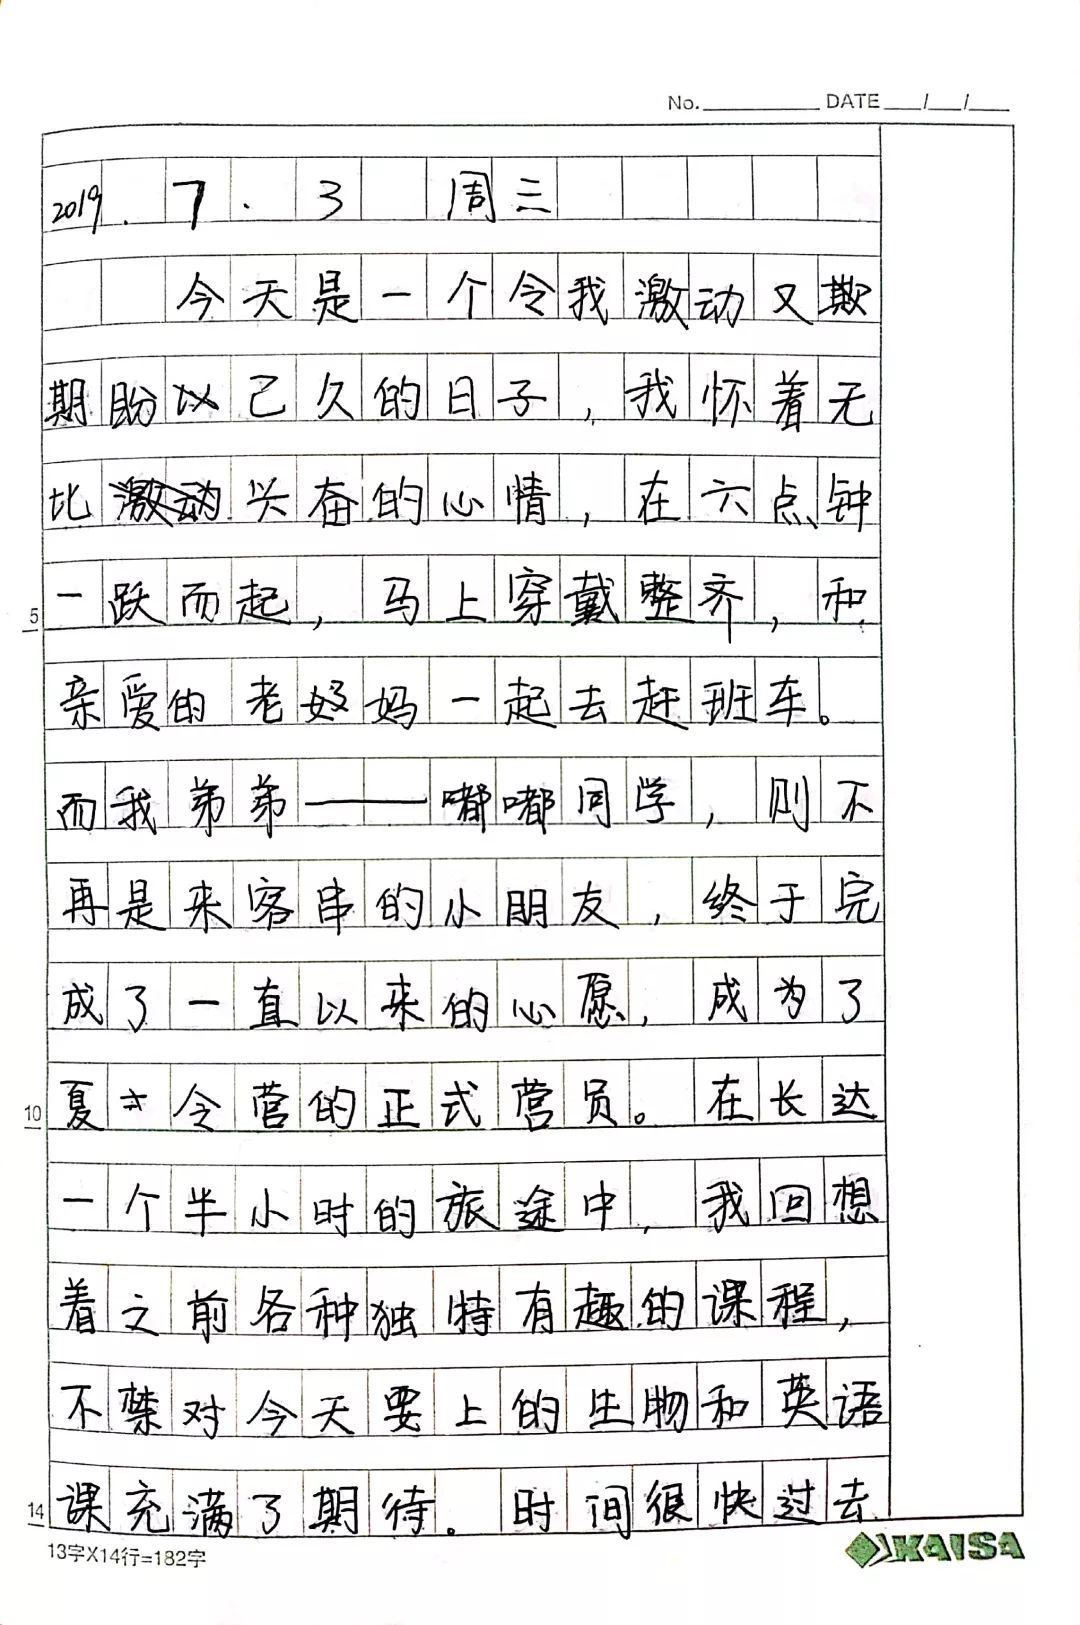 No. DATE / /
2019.7.3 周三
今天是一个令我激动又欺
期盼以己久的日子，我怀着无
比激动兴奋的心情，在六点钟
一跃而起，马上穿戴整齐，和
亲爱的老妈一起去赶班车。
而我弟弟——嘟嘟同学，则不
再是来客串的小朋友，终于完
成了一直以来的心愿，成为了
夏令营的正式营员。在长达
一个半小时的旅途中，我回想
着之前各种独特有趣的课程，
不禁对今天要上的生物和英语
课充满了期待。时间很快过去
5
10
14
13字X14行=182字
KAISA